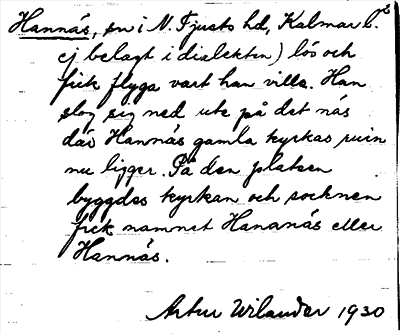 Hannäs, sn i N. Tjusts hd, Kalmar l.
ej belagt i dialekten) lös och
fick flyga vart han ville. Han
slog sig ned ute på det näs
där Hannäs gamla kyrkas ruin
nu ligger. På den platsen
byggdes kyrkan och socknen
fick namnet Hananäs eller
Hannäs.
Artur Wilander 1930